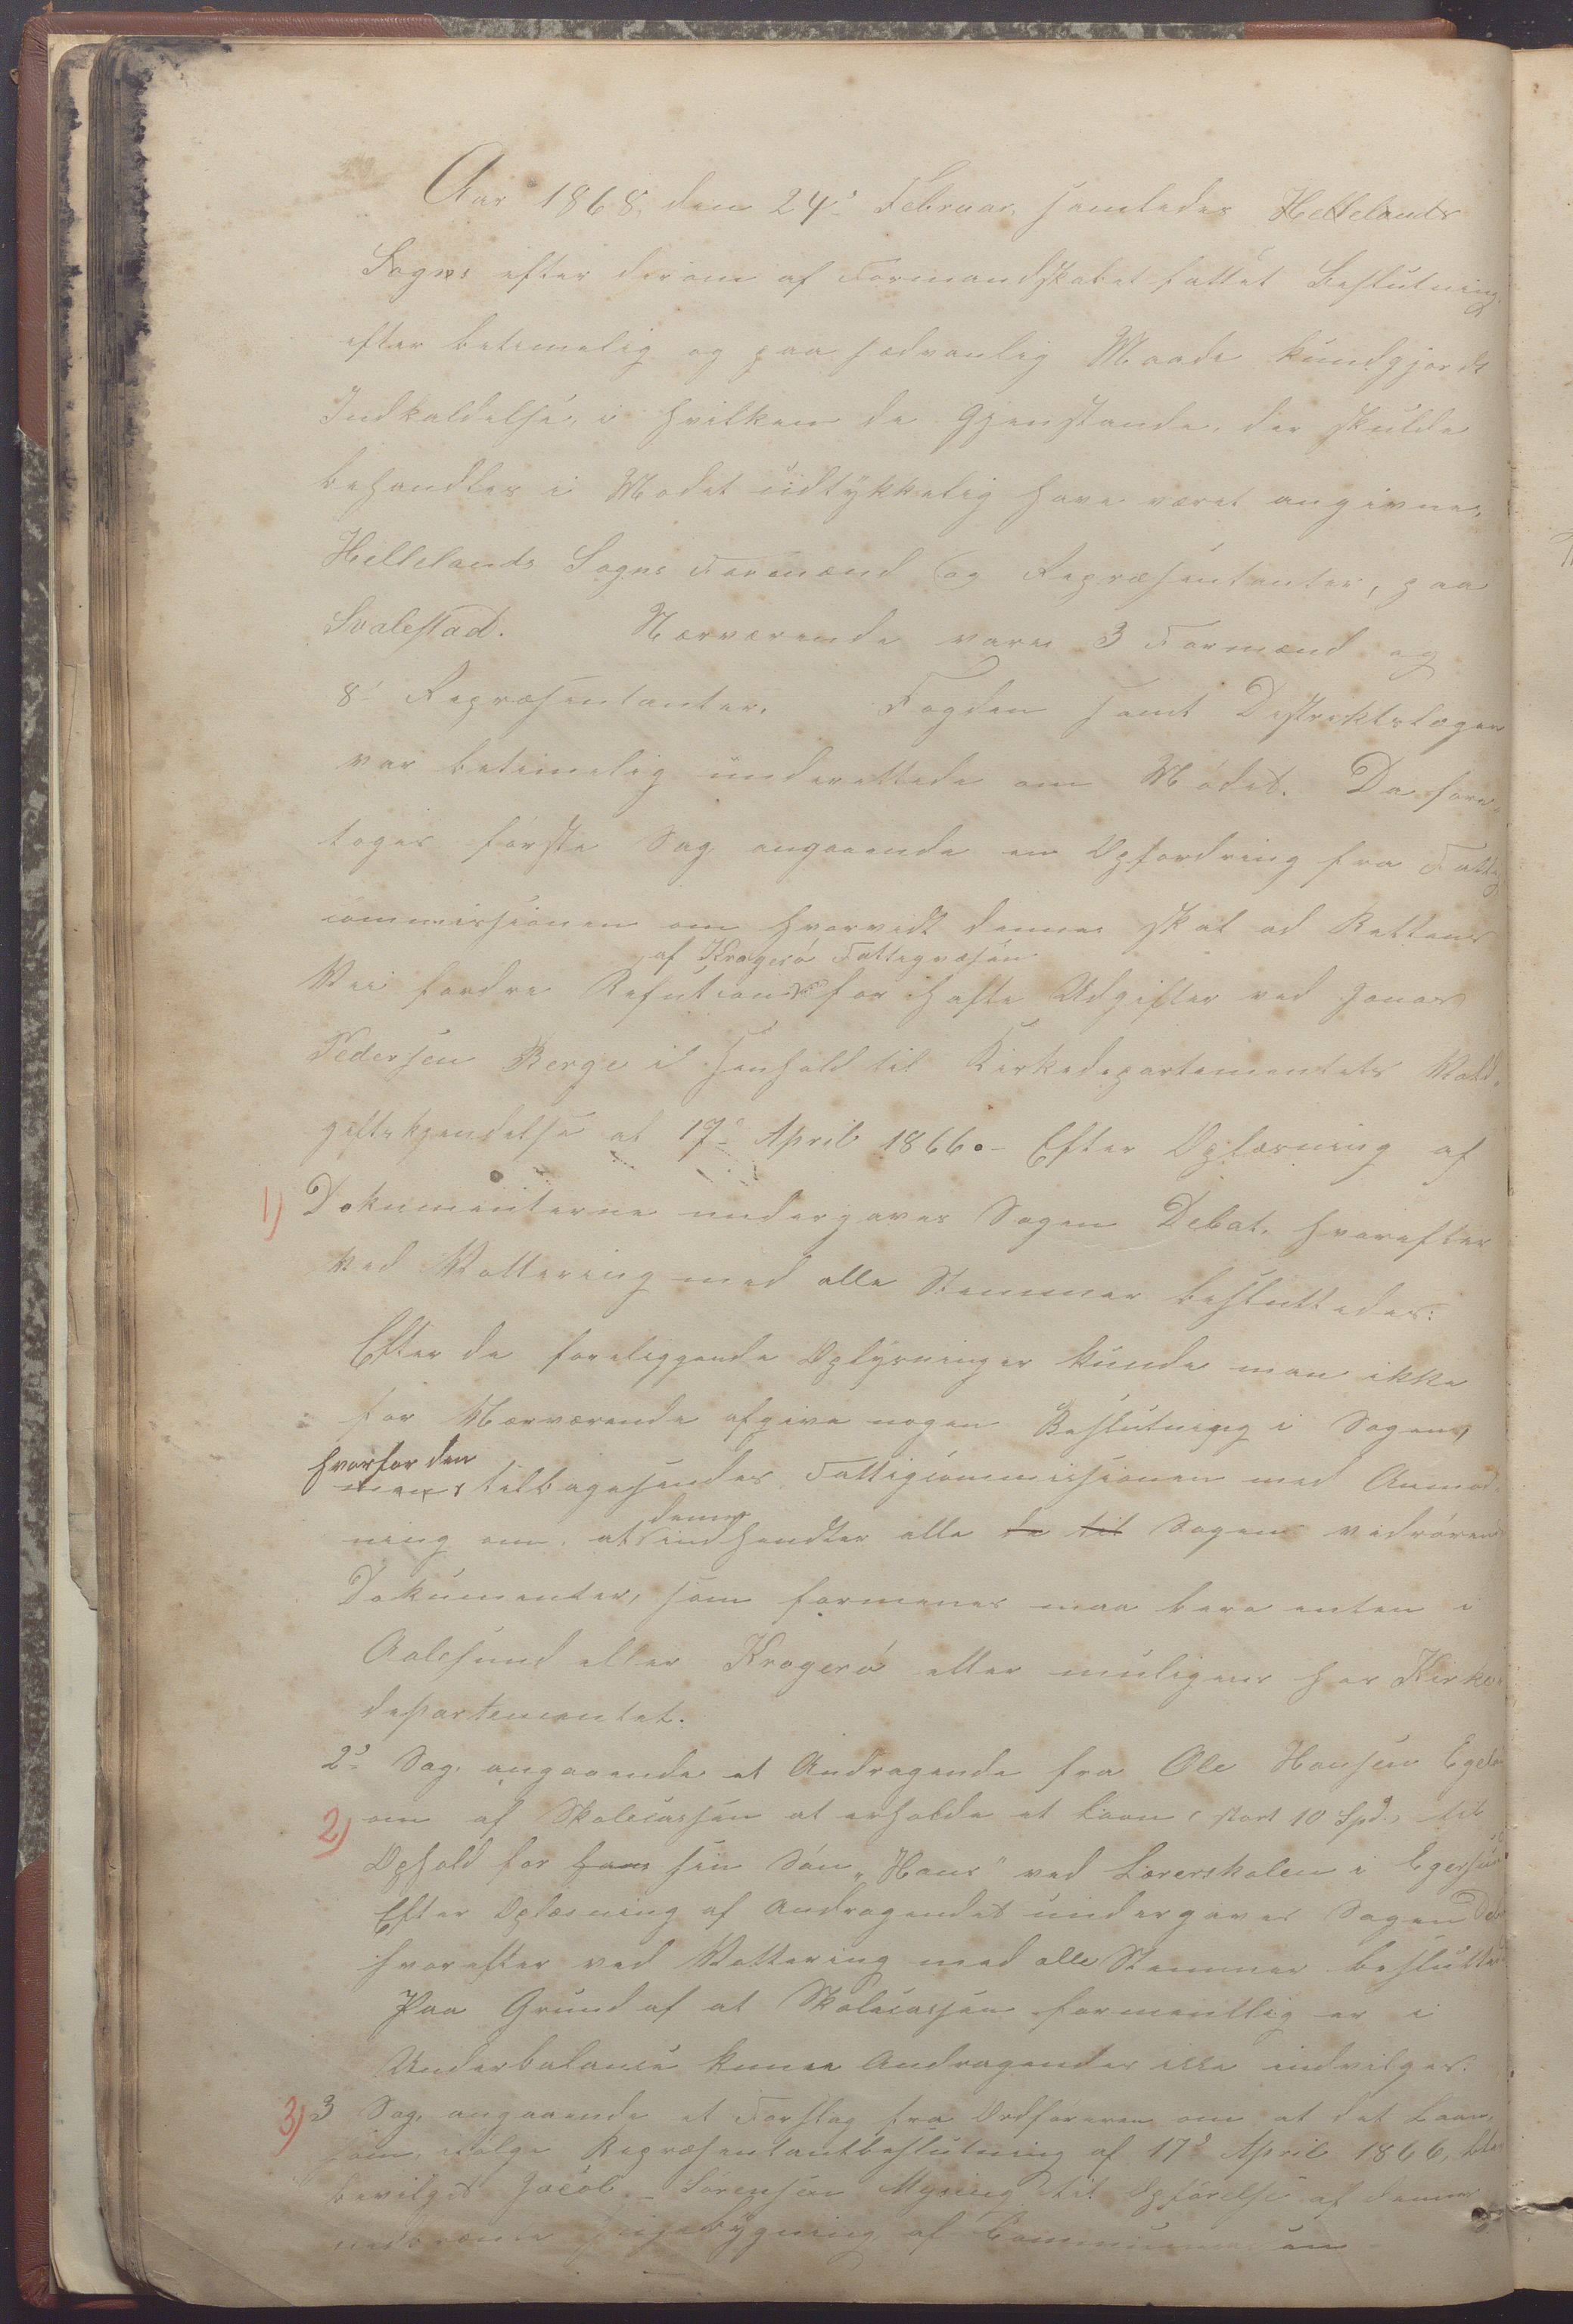 Aar 1868, den 24de Februar, samledes Hellelands
Sogns efter derom af Formandskabet fattet Beslutning,
efter betimelig og paa sædvanlig Maade kundgjordt
Indkaldelse, i hvilken de Gjenstande, der skulde
behandles i Mødet üdtykkelig have været angivne,
Hellelands Sogns Formænd og Repræsentanter, paa
Svalestad. Nærværende vare 3 Formænd og
8 Repræsentanter. Fogden samt Destriktslægen
var betimelig underettede om Mødet. Da fore-
toges første Sag angaaende en Opfordring fra Fattig
commissionen om hvorvidt denne skal ad Rettens
af Kragerø Fattigvæsen
Vei fordre Refution for hafte Udgifter ved Jonas
Pedersen Berge i Henhold til Kirkedepartementets Vold-
giftskjendelse af 17de April 1866.- Efter Oplæsning af
1) Dokumenterne undergaves Sagen Debat, hvorefter
ved Vottering med alle Stemmer besluttedes:
Efter de foreliggende Oplysninger kunde man ikke
for Nærværende afgive nogen Beslutning i Sagen,
hvorfor den
tilbagesendes Fattigcommissionen med Anmod-
denne
ning om, at indhendter alle de til Sagen vedrørend
Dokumenter, som formenes maa bero enten i
Aalesund eller Kragerø eller muligens hos Kirke-
departementet.
2de Sag, angaaende et Andragende fra Ole Hansen
2) om af Skolecassen at erholde et Laan, stort 10 Spd., til
Ophold for hans sin Søn "Hans" ved Lærerskolen i Egersund
Efter Oplæsning af Andragendet undergaves Sagen Deb
hvorefter ved Vottering med alle Stemmer beslutted
Paa Grund af at Skolecassen formentlig er i
Underbalance kunne Andragendes ikke indvilges.
3) 3 Sag, angaaende et Forslag fra Ordføreren om at det Laan,
som, ifølge Repræsentantbeslutning af 17de April 1866, blev
bevilget Jacob Sørensen til Opførelse af denne
af